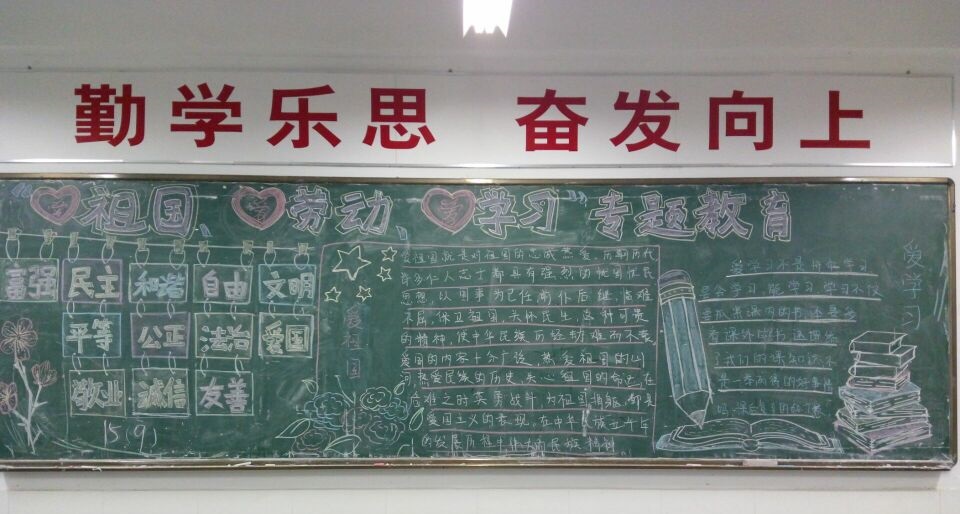 勤学乐思 奋发向上
“爱祖国 爱劳动 爱学习” 专题教育
富强 民主 和谐 自由 文明
平等 公正 法治 爱国
敬业 诚信 友善
15.9
爱祖国
爱祖国就是对祖国的忠诚和热爱。历朝历代
许多仁人志士都具有强烈的忧国忧民
思想，以国事为己任，前仆后继，临难
不屈，保卫祖国，关怀民生，这种可贵
的精神，使中华民族历经劫难而不衰
爱国的内容十分广泛，热爱祖国的山
河，热爱民族的历史，关心祖国的命运，在
危难之时英勇战斗，为祖国捐躯，都是
爱国主义的表现。在中华民族五千年
的发展历程中
民族精神
爱学习
学习
学会学习 能学习 学习不仅
看课外的书